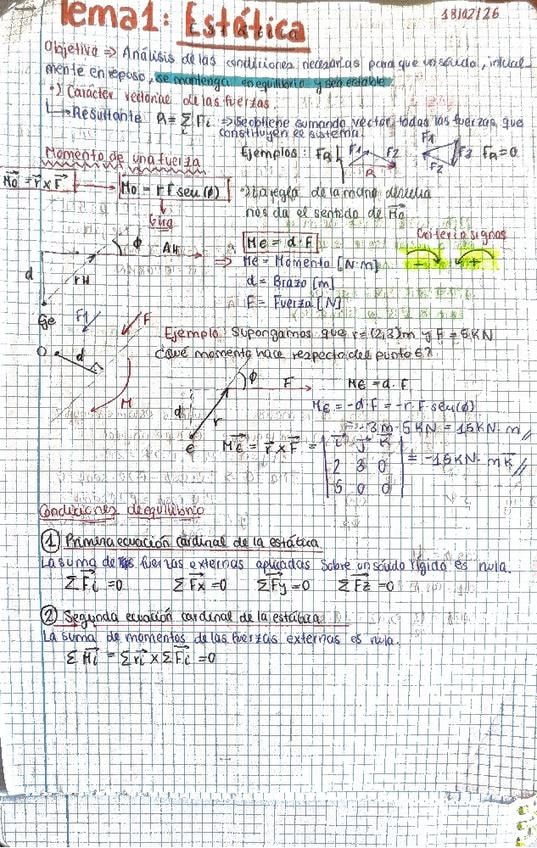 Tema 1: Estática
18/02/26
Objetivo => Análisis de las condiciones necesarias para que un sólido, inicial-
mente en reposo, se mantenga en equilibrio y sea estable.
•) Carácter vectorial de las fuerzas
Resultante R = Σ Fi => Se obtiene sumando vector. todas las fuerzas que
constituyen el sistema.
Momento de una fuerza
Ejemplos: FR F1 F2 R F1 F3 F2 FR=0
Mo = r x F
Mo = r F seu(φ)
•) La regla de la mano derecha
nos da el sentido de Mo
Gira
Criterio signos
- +
d φ AH rH
Me = d·F
=> Me = Momento [N·m]
d = Brazo [m]
F = Fuerza [N]
F1 F
O d
M
Ejemplo: Supongamos que r = (2,3)m y F = 5KN
¿Qué momento hace respecto del punto e?
φ F d r e
Me = d·F
Me = -d·F = -r·F·seu(φ)
= -3m·5KN = 15KN·m //
Me = r x F = | i j k | 2 3 0 | 5 0 0 | = -15KN·m k //
Condiciones de equilibrio
① Primera ecuación cardinal de la estática
La suma de las fuerzas externas aplicadas sobre un sólido rígido es nula.
Σ Fi = 0 Σ Fx = 0 Σ Fy = 0 Σ Fz = 0
② Segunda ecuación cardinal de la estática
La suma de momentos de las fuerzas externas es nula.
Σ Mi = Σ ri x Σ Fi = 0